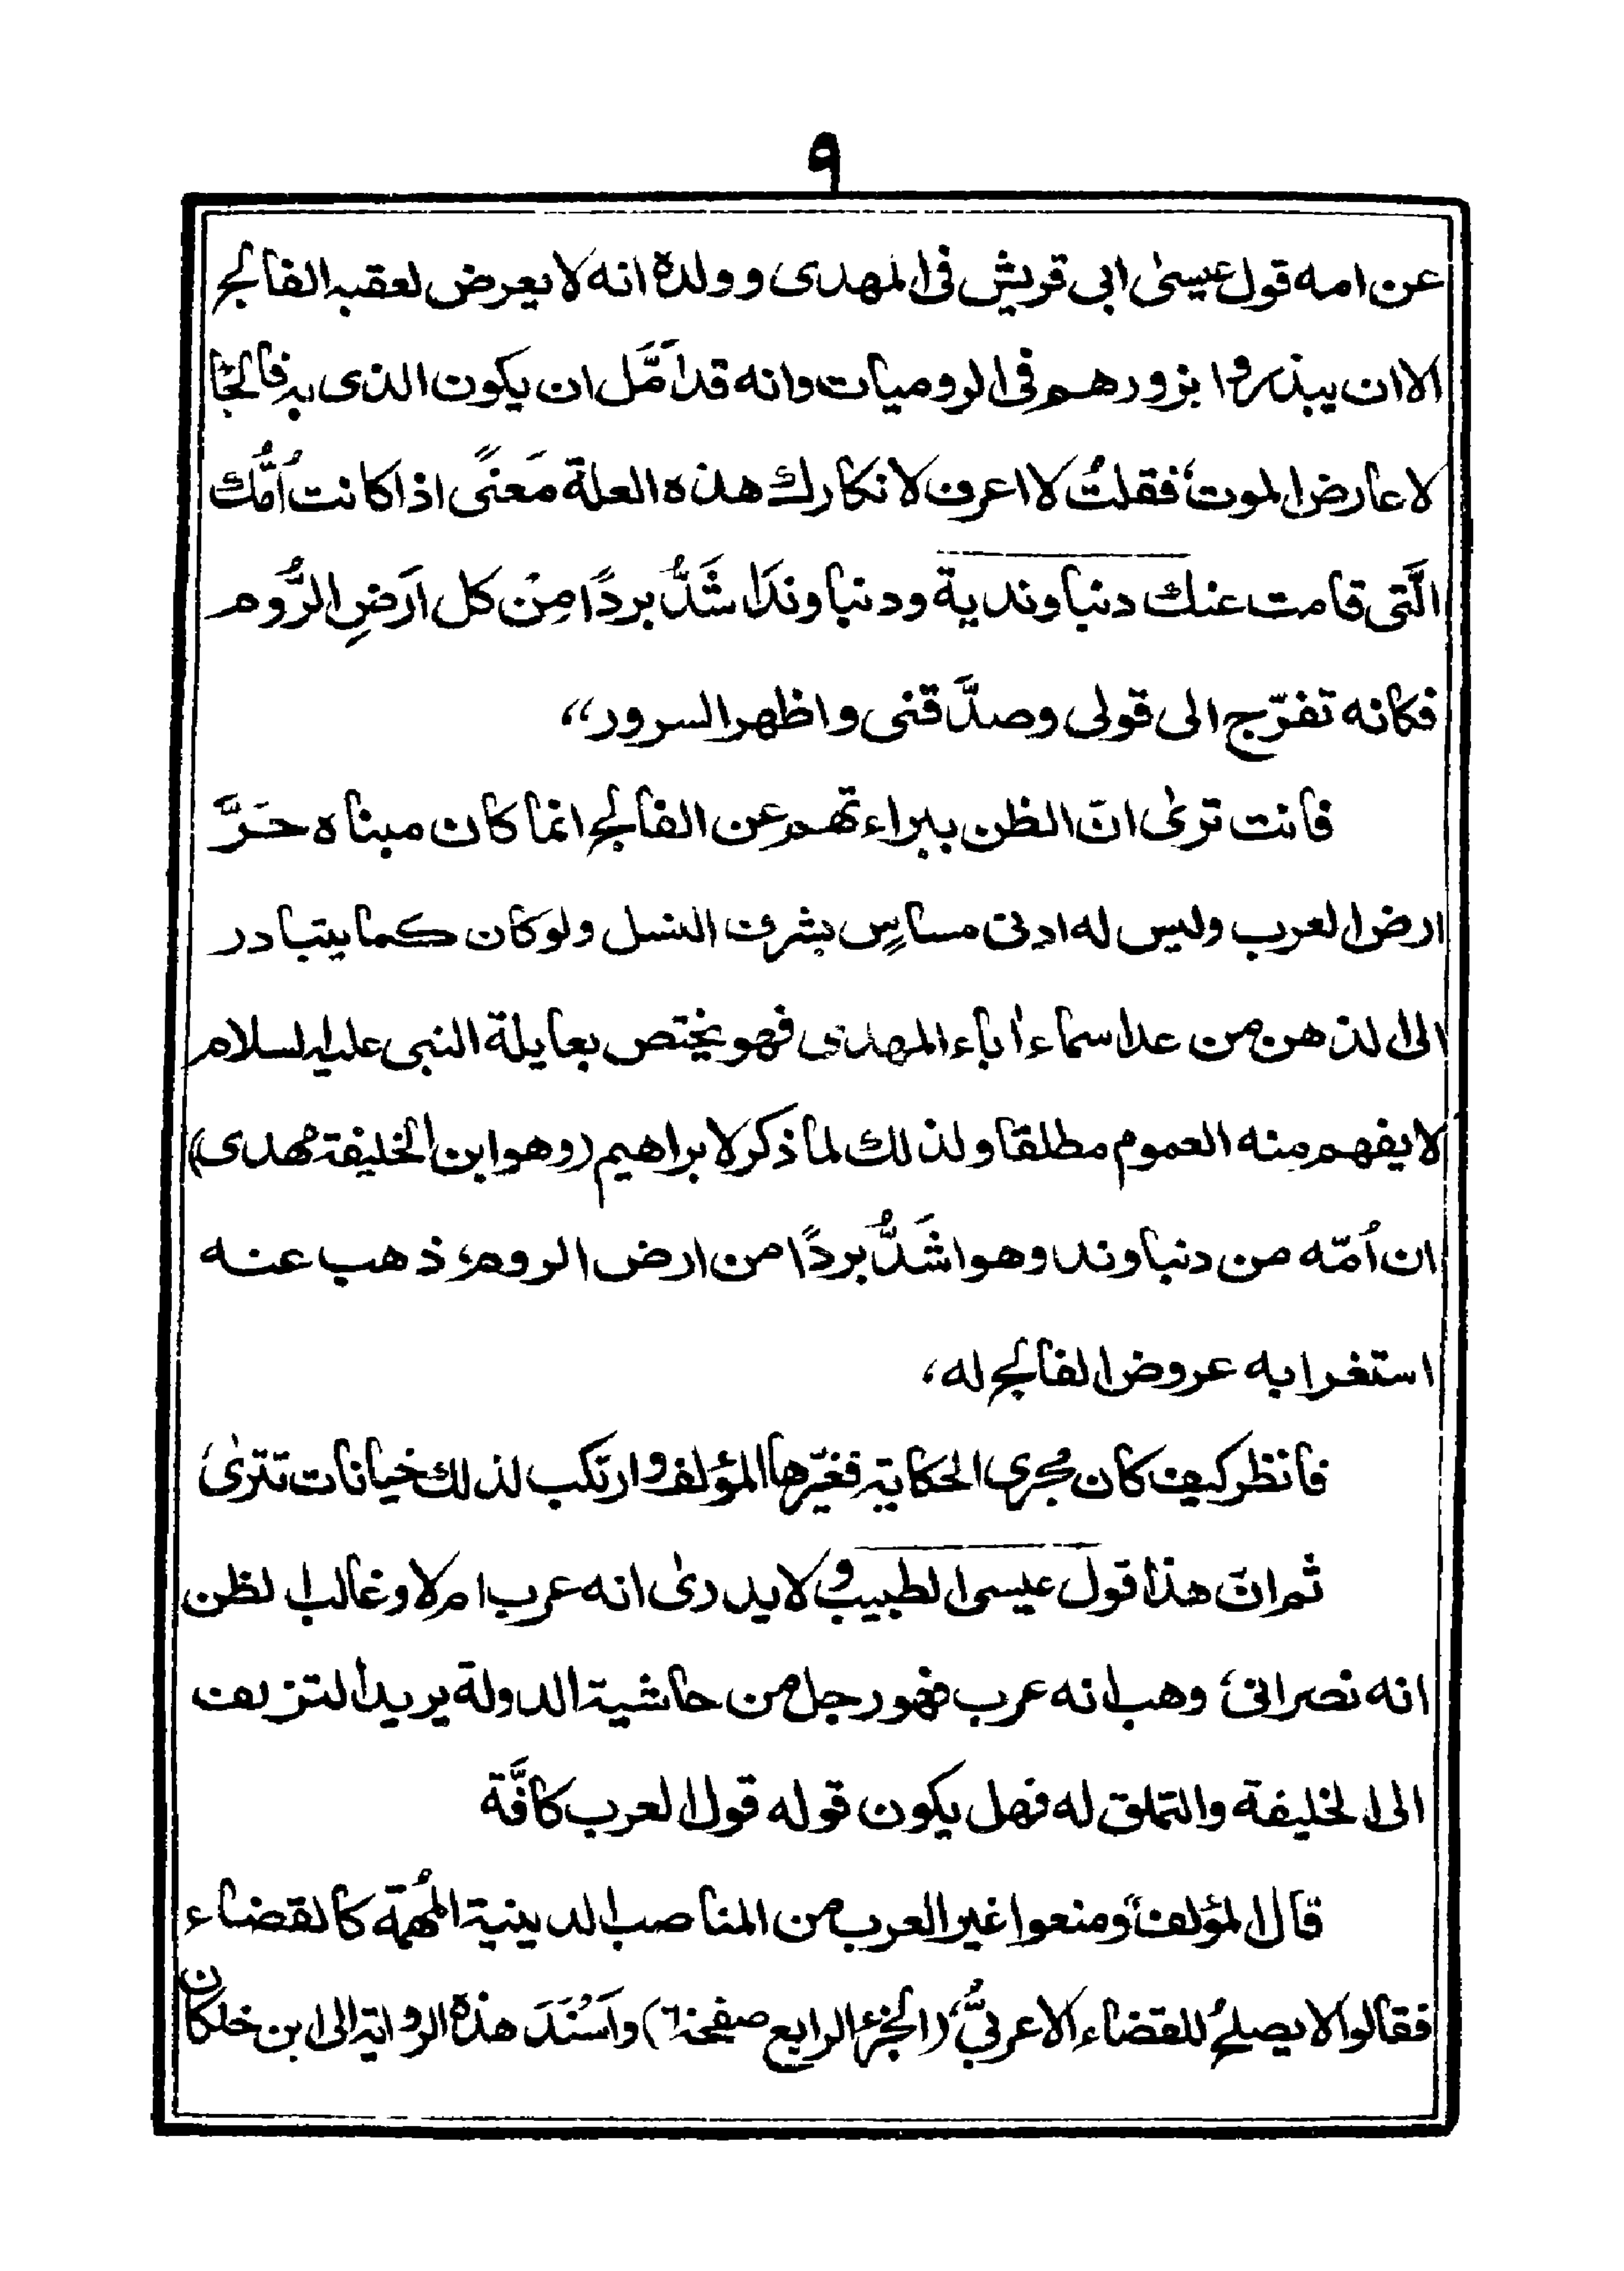 ٩
عن امه قول عيسىٰ ابى قريش فى المهدى وولدة انه لا يعرض لعقبه الفالج
الا ان يبذروا بزورهم فى الروميات وانه قد اَمَّل ان يكون الذى به فالجًا
لا عارض الموت، فقلتُ لا اعرف لانكارك هذه العلة مَعنىً اذا كانت اُمُّك
الَّتى قامت عنك دنباوندية ودنباوند اَشَدُّ بردًا مِنْ كل اَرَضِ الرُّوم
فكانه تفرّج الى قولى وصدَّقنى واظهر السرور“
فانت ترىٰ انّ الظن ببراءتهم عن الفالج انما كان مبناه حَرَّ
ارض العرب وليس له ادنى مساسٍ بشرف النسل ولو كان كما يتبادر
الى الذهن من عد اسماء اٰباء المهدى فهو يختص بعايلة النبى عليه السلام
لا يفهم منه العموم مطلقا ولذلك لما ذكر لابراهيم (وهو ابن الخليفة مهدى)
ان اُمّه من دنباوند وهو اشَدُّ بردًا من ارض الروم، ذهب عنه
استغرابه عروض الفالج له،
فانظر كيف كان مُجرى الحكاية فغيّرها المؤلف وارتكب لذلك خيانات تترىٰ،
ثم انّ هذا قول عيسى الطبيب ولا يدرىٰ انه عرب ام لا وغالب الظن
انه نصرانى، وهب انه عرب فهو رجل من حاشية الدولة يريد التزلف
الى الخليفة والتملق له فهل يكون قوله قول العرب كافَّة
قال المؤلف ”ومنعوا غير العرب من المناصب الدينية المُهمّة كالقضاء
فقالوا لا يصلحُ للقضاء الا عربىٌّ“ (الجزء الرابع صفحة ٦) واَسْنَدَ هذة الرواية الى ابن خلكان